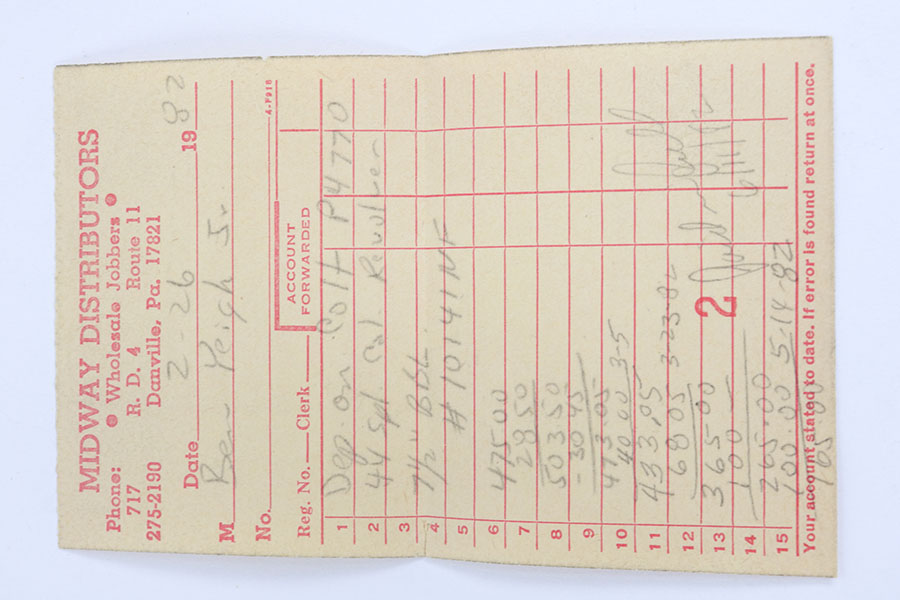 MIDWAY DISTRIBUTORS
Phone: ● Wholesale Jobbers ●
717 R. D. 4 Route 11
275-2190 Danville, Pa. 17821
Date 2-26 1982
M Ben Jr
No.
A-F918
Reg. No. Clerk ACCOUNT FORWARDED
1 Dep on Colt P4770
2 44 Spl Cal Revolver
3 7 1/2" BBL
4 # 10141NF
5
6 475 00
7 28 50
8 503 50
9 - 30 45
10 473.05
40 00 3-5
11 433.05
12 68 05 3-23-82
13 365-00 2
14 100
265-00
15 100.00 5-14-82
165.00
Your account stated to date. If error is found return at once.